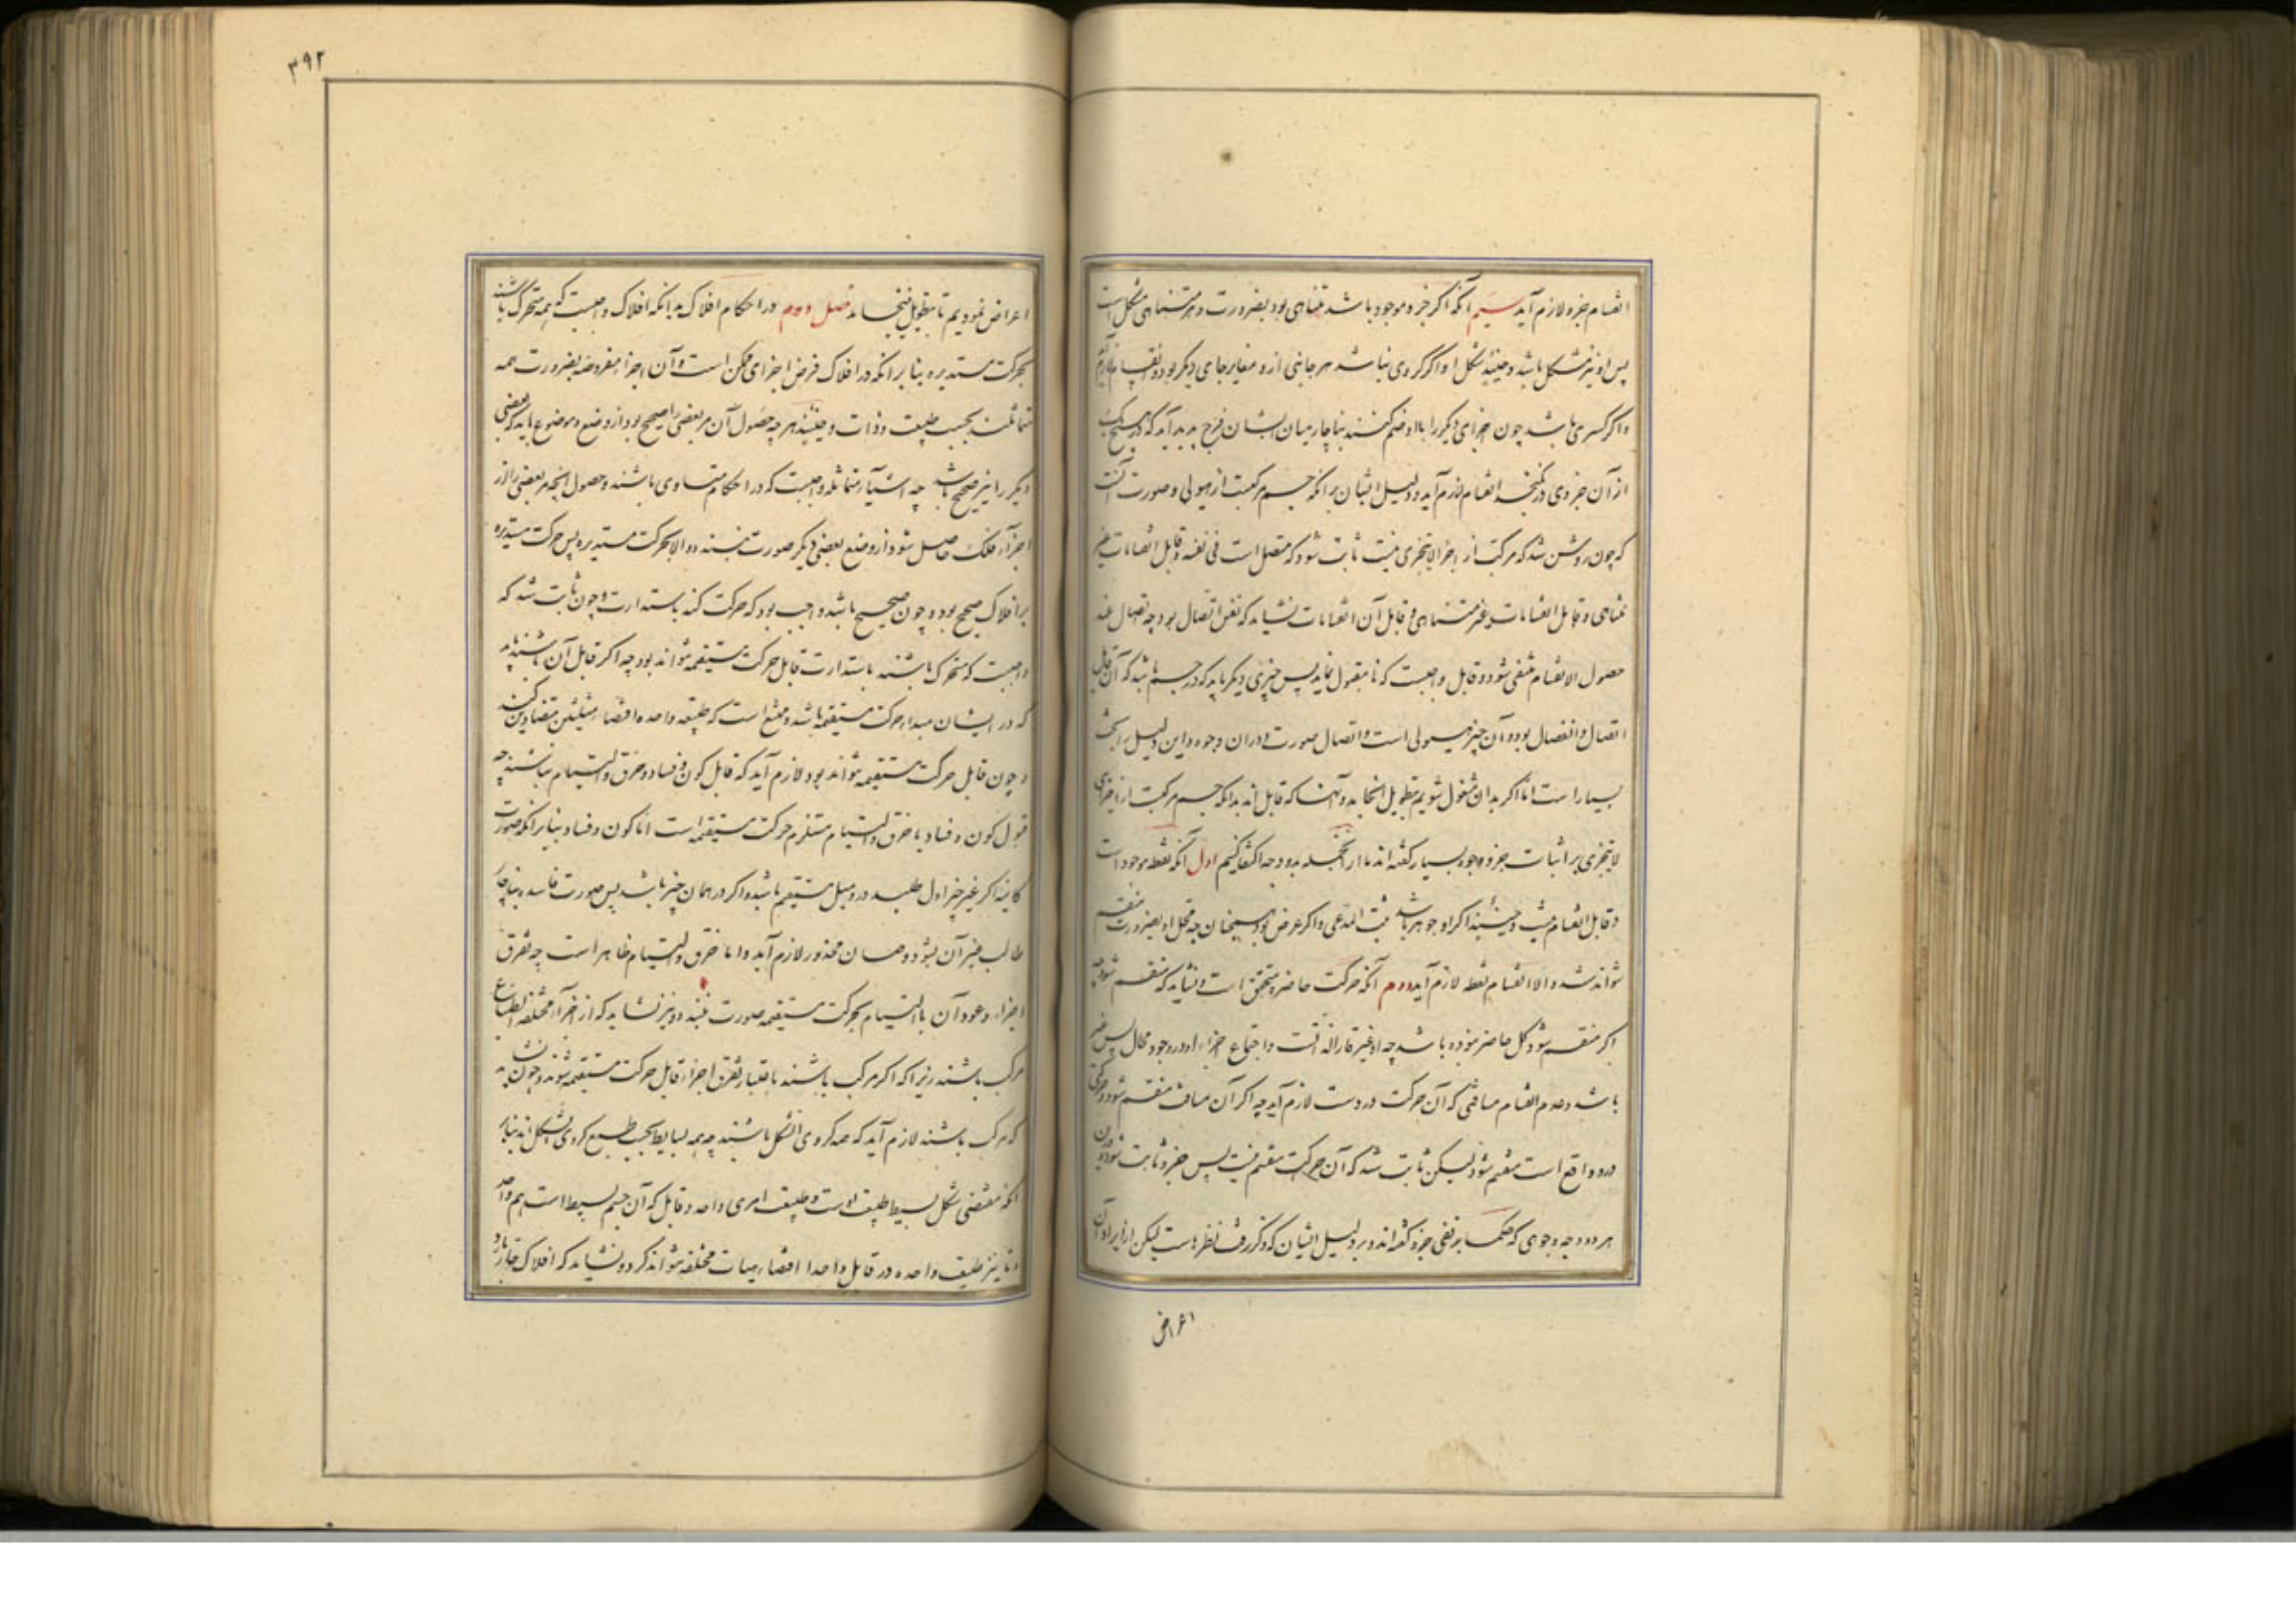 انقسام جزو لازم آید سیم آنکه اگر جزو موجود باشد متناهی بود بضرورت و هر متناهی مشکل است
پس او نیز مشکل باشد و حینئذ شکل او اگر کروی نباشد هر جانبی ازو مغایر جای دیگر بود و انقسام لازم آید
و اگر کری باشد چون اجزای دیگر را با او ضم کنند بناچار میان ایشان فرج پدید آید که هیچ یک
از آن جزوی در نگنجد انقسام لازم آید و دلیل ایشان بر آنکه جسم مرکبست از هیولی و صورت آنست
که چون روشن شد که مرکب از اجزا لایتجزی نیست ثابت شود که متصل است فی نفسه و قابل انقسامات غیر
متناهی و قابل انقسامات غیر متناهی و قابل آن انقسامات نشاید که نفس اتصال بود چه اتصال عند
حصول الانقسام منتفی شود و قابل واجبست که با مقبول بماند پس چیزی دیگر باید که در جسم باشد که آن قابل
اتصال و انفصال بود و آن چیز هیولی است و اتصال صورت و در آن وجوه و این دلیل را بحث
بسیار است اما اگر بدان مشغول شویم بتطویل انجامد و آنها که قابل‌اند بدانکه جسم مرکبست از اجزای
لایتجزی بر اثبات جزو وجوه بسیار گفته‌اند ما از آنجمله بدو وجه اکتفا کنیم اول آنکه نقطه موجود است
و قابل انقسام نیست و حینئذ اگر او جوهر باشد ثبت المدعی و اگر عرض بود همچنان چه محل او بضرورت منقسم
نتواند شد و الا انقسام نقطه لازم آید دوم آنکه حرکت حاضره متحقق است و نشاید که منقسم شود چه
اگر منقسم شود کل حاضر نبوده باشد چه او غیر قار الذات است و اجتماع اجزاء او در وجود محال پس غیر
باشد و عدم انقسام مسافتی که آن حرکت دروست لازم آید چه اگر آن مسافت منقسم شود و حرکتی
درو واقع است منقسم شود لیکن ثابت شد که آن حرکت منقسم نیست پس جزو ثابت شود و درین
هر دو وجه و وجوهی که حکما بر نفی جزو گفته‌اند و بر دلیل ایشان که ذکر رفت نظرهاست لیکن از ایراد آن
اعراض
۳۹۲
اعراض نمودیم تا بتطویل نینجامد فصل دوم در احکام افلاک بدانکه افلاک واجبست که همه متحرک باشند
بحرکت مستدیره بنا بر آنکه در افلاک فرض اجزای ممکن است و آن اجزاء مفروضه بضرورت همه
متماثلند بحسب طبیعت و ذات و حینئذ هر چه حصول آن مر بعضی را صحیح بود از وضع و موضع باید که بعضی
دیگر را نیز صحیح باشد چه اشیاء متماثله واجبست که در احکام متساوی باشند و حصول آنچه مر بعضی را از
اجزاء فلک حاصل شود از وضع بعضی دیگر صورت نبندد الا بحرکت مستدیره پس حرکت مستدیره
بر افلاک صحیح بود و چون صحیح باشد واجب بود که حرکت کند باستدارت و چون ثابت شد که
واجبست که متحرک باشند باستدارت قابل حرکت مستقیمه نتوانند بود چه اگر قابل آن باشند لازم
که در ایشان مبداء حرکت مستقیمه باشد و ممتنع است که طبیعه واحده اقتضاء میلین متضادین کند
و چون قابل حرکت مستقیمه نتوانند بود لازم آید که قابل کون و فساد و خرق و التیام نباشند چه
قبول کون و فساد یا خرق و التیام مستلزم حرکت مستقیمه است اما کون و فساد بنا بر آنکه صورت
کاینه اگر غیر حیز اول طلبد درو میل مستقیم باشد و اگر در همان حیز باشد پس صورت فاسده بناچار
طالب غیر آن بود و همان محذور لازم آید و اما خرق و التیام ظاهر است چه تفرق
اجزاء و عود آن بالتیام بحرکت مستقیمه صورت نبندد و نیز نشاید که از اجزاء مختلفة الطباع
مرکب باشند زیرا که اگر مرکب باشند باعتبار تفرق اجزاء قابل حرکت مستقیمه شوند و چون نشاید
که مرکب باشند لازم آید که همه کروی الشکل باشند چه همه بسایط بحسب طبع کروی الشکل‌اند بنا بر
آنکه مقتضی شکل بسیط طبیعت اوست و طبیعت امری واحد و قابل که آن جسم بسیط است هم واحد
و تاثیر طبیعت واحده در قابل واحد اقتضاء هیأت مختلفه نتواند کرد و نشاید که افلاک حار یا بارد